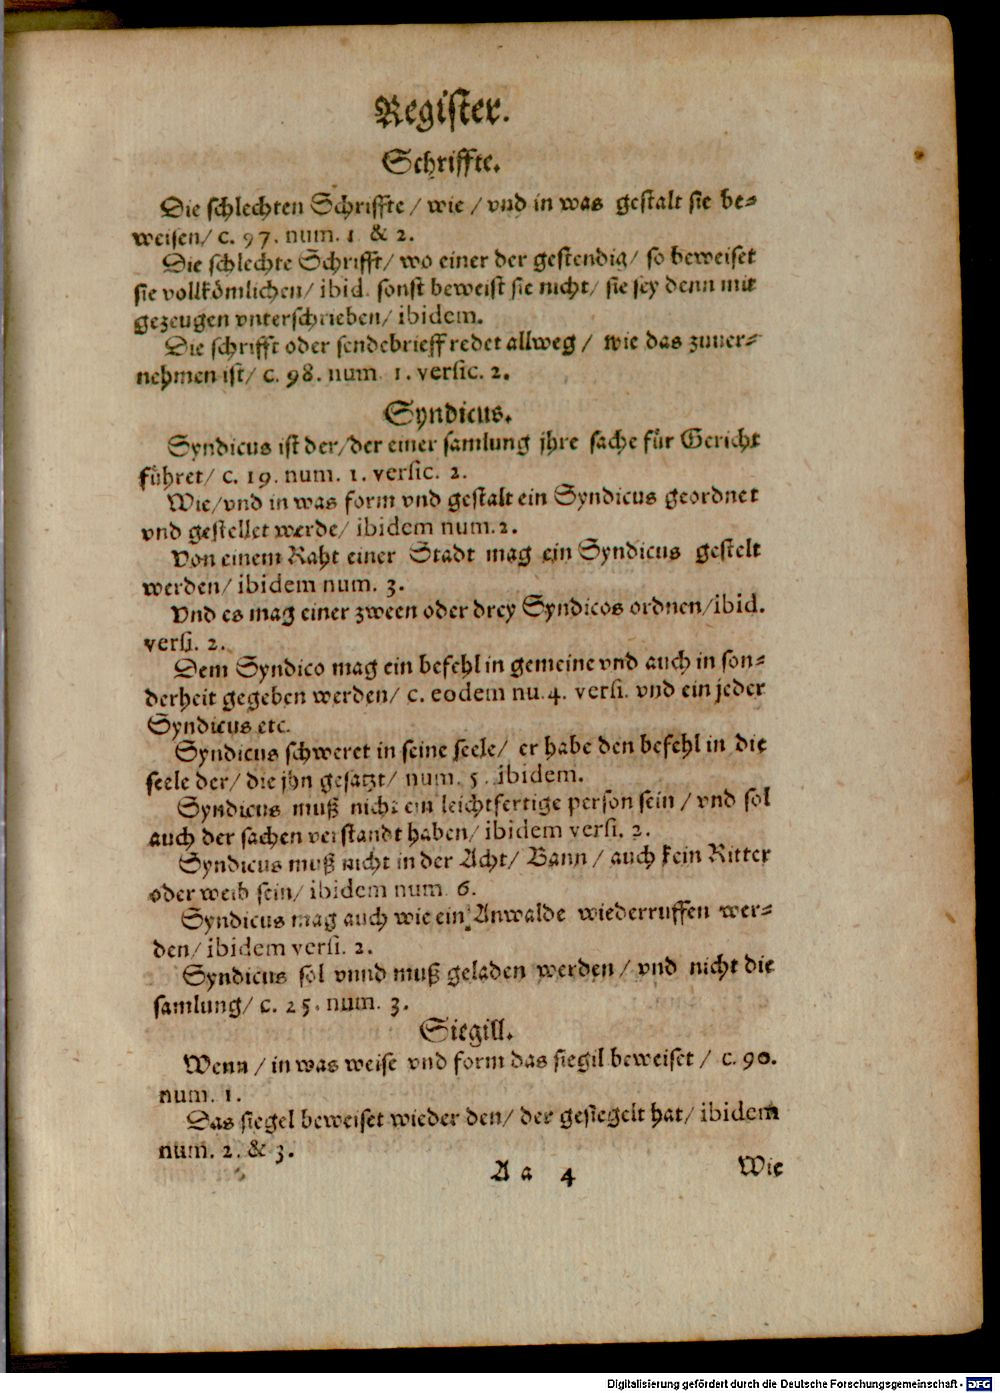 Register.
Schriffte.
Die schlechten Schriffte / wie / vnd in was gestalt sie be-
weisen/ c. 97. num. 1 & 2.
Die schlechte Schrifft/ wo einer der gestendig/ so beweiset
sie vollkömlichen/ ibid. sonst beweist sie nicht/ sie sey denn mit
gezeugen vnterschrieben/ ibidem.
Die schrifft oder sendebrieff redet allweg / wie das zuuer-
nehmen ist/ c. 98. num. 1. versic. 2.
Syndicus.
Syndicus ist der/der einer samlung jhre sache für Gericht
führet/ c. 19. num. 1. versic. 2.
Wie/vnd in was form vnd gestalt ein Syndicus geordnet
vnd gestellet werde/ ibidem num. 2.
Von einem Raht einer Stadt mag ein Syndicus gestelt
werden/ ibidem num. 3.
Vnd es mag einer zween oder drey Syndicos ordnen/ibid.
versi. 2.
Dem Syndico mag ein befehl in gemeine vnd auch in son-
derheit gegeben werden/ c. eodem nu. 4. versi. vnd ein jeder
Syndicus etc.
Syndicus schweret in seine seele/ er habe den befehl in die
seele der/ die jhn gesatzt/ num. 5. ibidem.
Syndicus muß nicht ein leichtfertige person sein / vnd sol
auch der sachen verstandt haben/ ibidem versi. 2.
Syndicus muß nicht in der Acht/ Bann / auch kein Ritter
oder weib sein/ ibidem num. 6.
Syndicus mag auch wie ein Anwalde wiederruffen wer-
den/ ibidem versi. 2.
Syndicus sol vnnd muß geladen werden / vnd nicht die
samlung/ c. 25. num. 3.
Siegill.
Wenn / in was weise vnd form das siegil beweiset / c. 90.
num. 1.
Das siegel beweiset wieder den/ der gesiegelt hat/ ibidem
num. 2. & 3.
A a 4 Wie
Digitalisierung gefördert durch die Deutsche Forschungsgemeinschaft - DFG